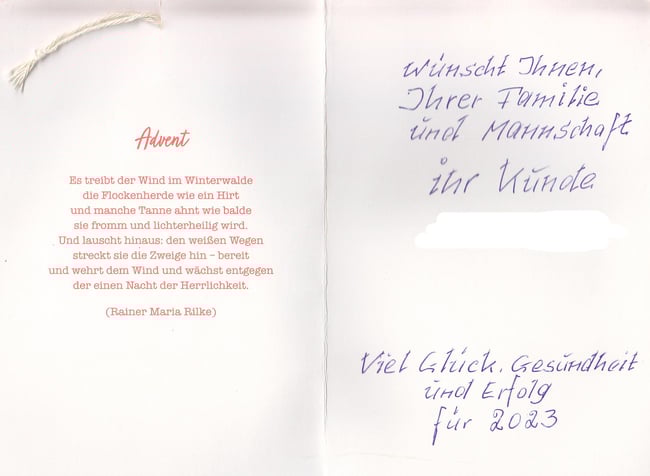 Advent
Es treibt der Wind im Winterwalde
die Flockenherde wie ein Hirt
und manche Tanne ahnt wie balde
sie fromm und lichterheilig wird.
Und lauscht hinaus: den weißen Wegen
streckt sie die Zweige hin – bereit
und wehrt dem Wind und wächst entgegen
der einen Nacht der Herrlichkeit.
(Rainer Maria Rilke)
Wünscht Ihnen,
Ihrer Familie
und Mannschaft
ihr Kunde
Viel Glück. Gesundheit
und Erfolg
für 2023